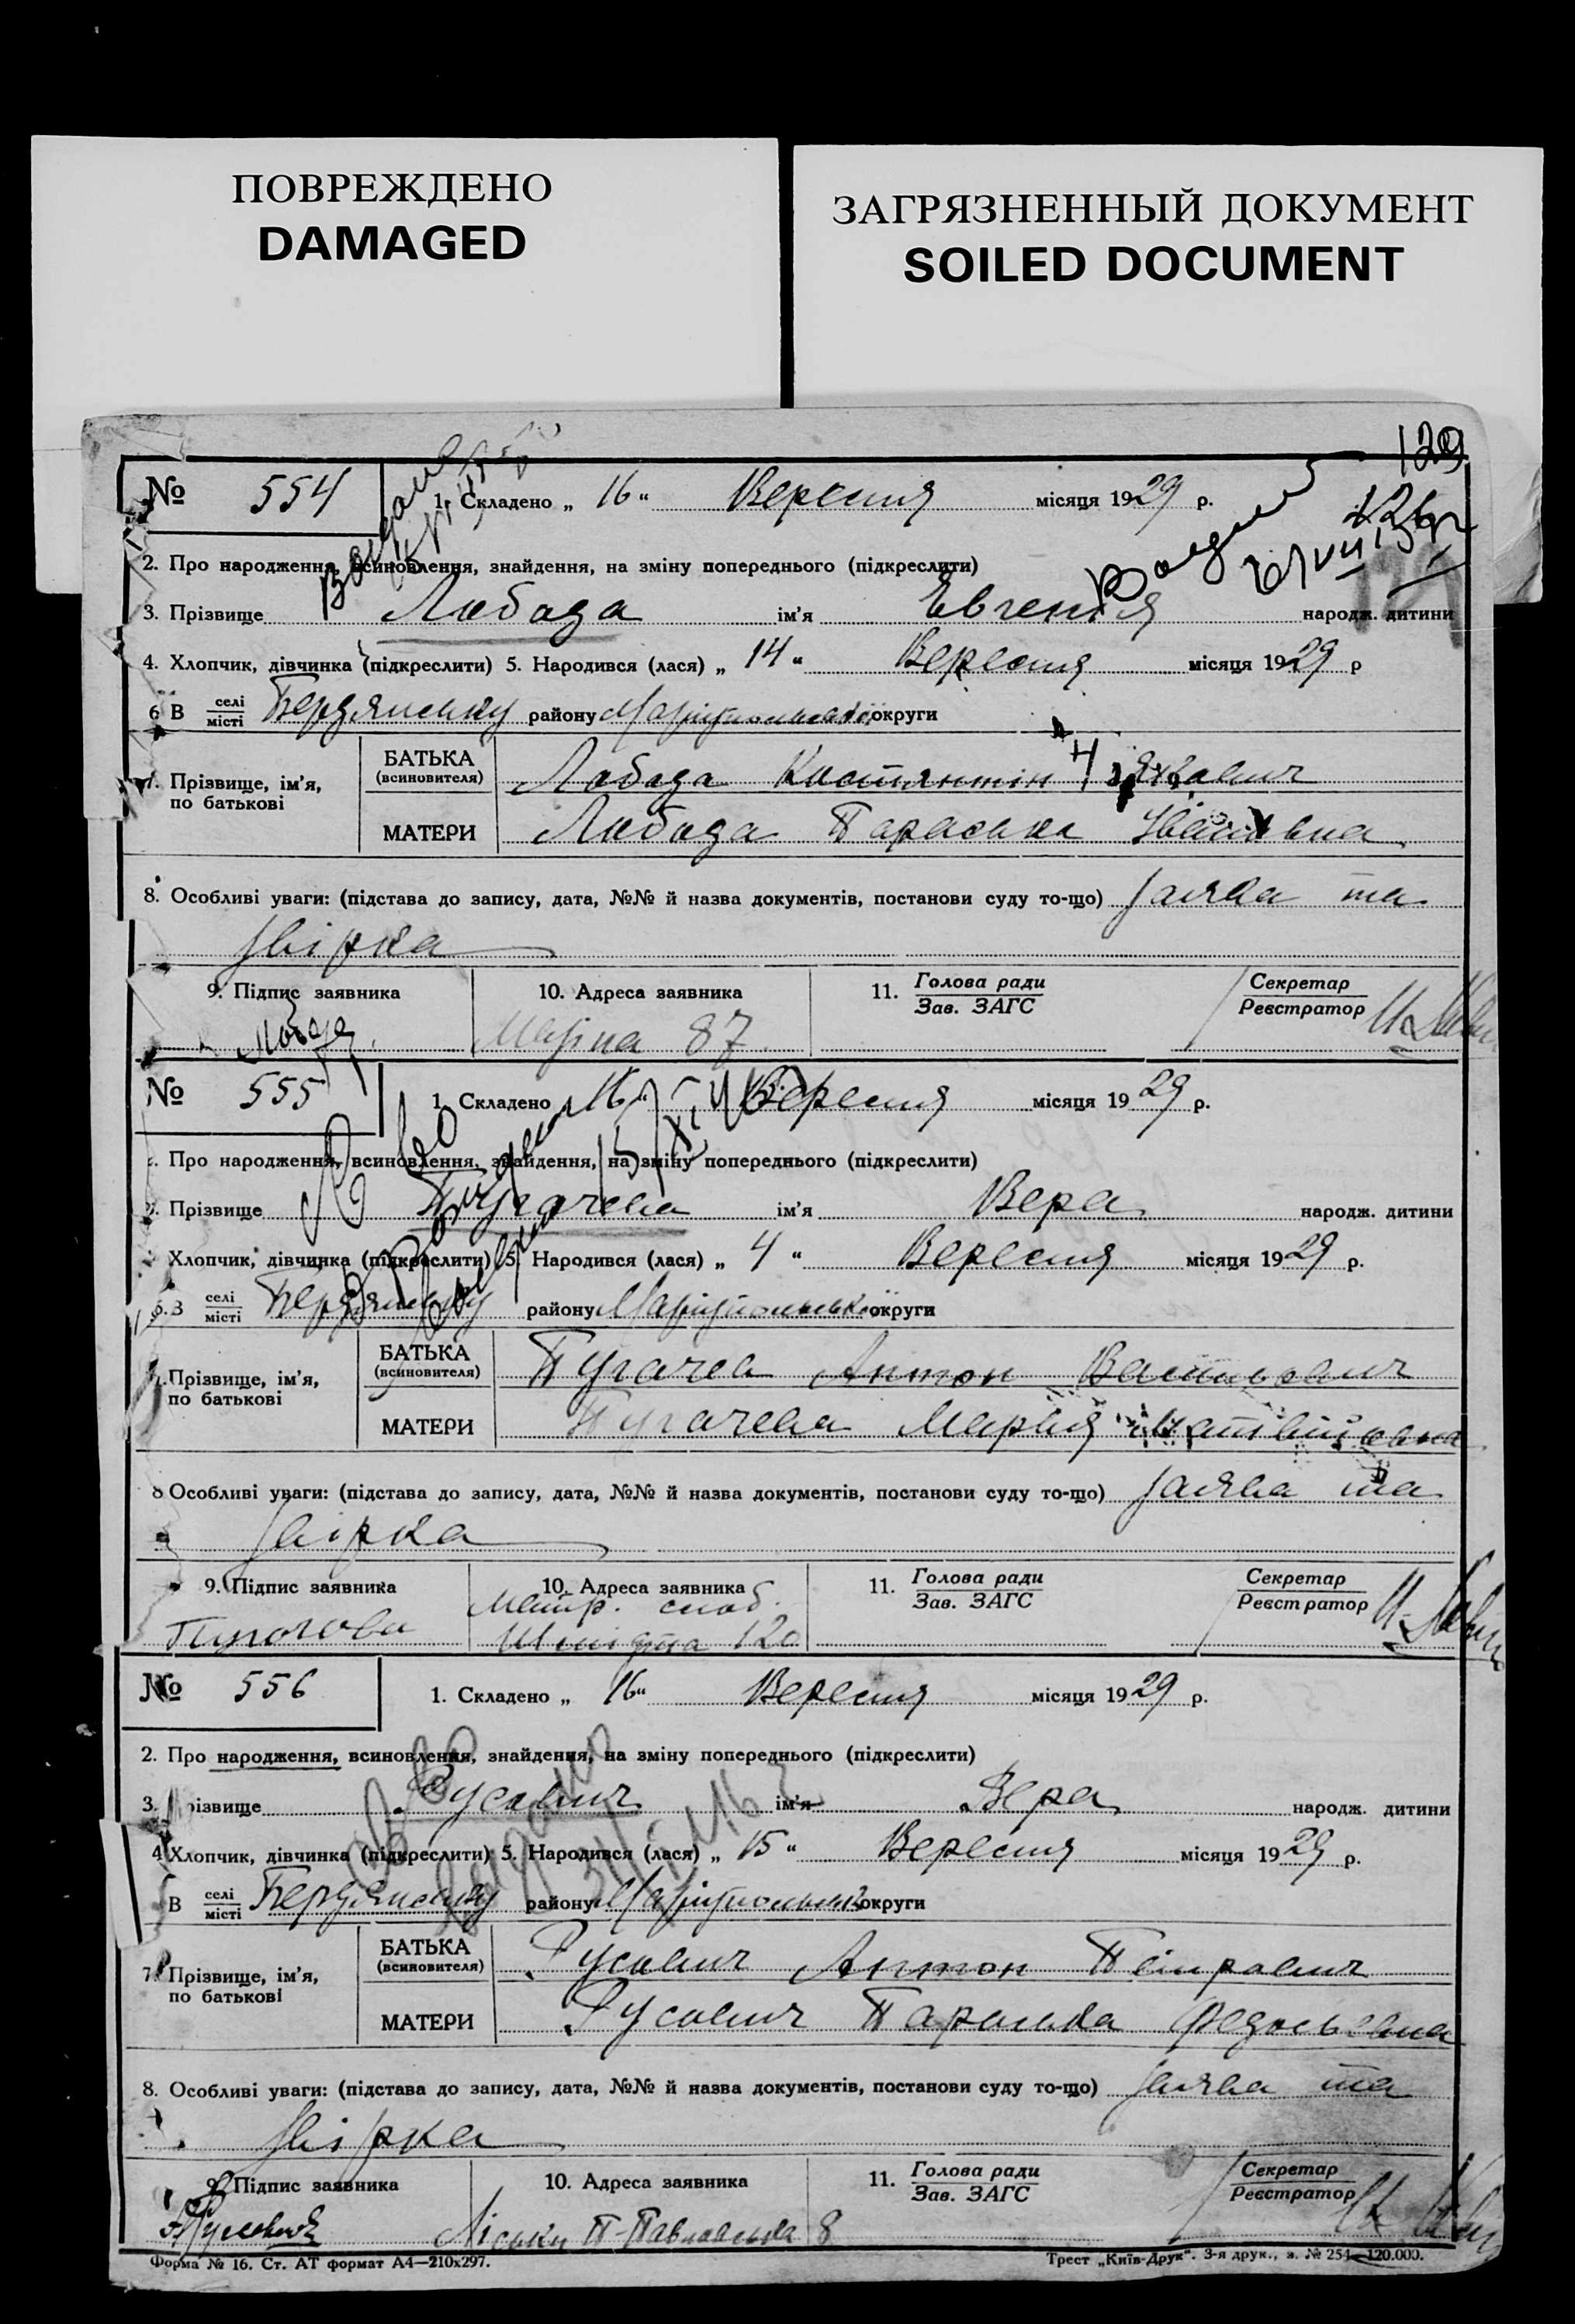 ПОВРЕЖДЕНО
DAMAGED
ЗАГРЯЗНЕННЫЙ ДОКУМЕНТ
SOILED DOCUMENT
129
№ 554 1. Складено „ 16 “ Вересня місяця 1929 р.
2. Про народження, всиновлення, знайдення, на зміну попереднього (підкреслити)
3. Прізвище Лобода ім'я Евгенія народж. дитини
4. Хлопчик, дівчинка (підкреслити) 5. Народився (лася) „ 14 “ Вересня місяця 1929 р
6 В селі місті Бердянську району Маріупольської округи
7. Прізвище, ім'я, по батькові
БАТЬКА (всиновителя) Лобода Костянтін Якович
МАТЕРИ Лобода Параська Івановна
8. Особливі уваги: (підстава до запису, дата, №№ й назва документів, постанови суду то-що) Заява та
звірка
9. Підпис заявника 10. Адреса заявника 11. Голова ради Зав. ЗАГС Секретар Реєстратор
Лобода 87
№ 555 1. Складено 16 “ Вересня місяця 1929 р.
Про народження, всиновлення, знайдення, на зміну попереднього (підкреслити)
Прізвище Пугачева ім'я Вера народж. дитини
Хлопчик, дівчинка (підкреслити) 5. Народився (лася) „ 4 “ Вересня місяця 1929 р.
6. В селі місті Бердянську району Маріупольської округи
Прізвище, ім'я, по батькові
БАТЬКА (всиновителя) Пугачев Антон Васильович
МАТЕРИ Пугачева Марія Матвіївна
8 Особливі уваги: (підстава до запису, дата, №№ й назва документів, постанови суду то-що) Заява та
звірка
9. Підпис заявника 10. Адреса заявника 11. Голова ради Зав. ЗАГС Секретар Реєстратор
Шмідта 120
№ 556 1. Складено „ 16 “ Вересня місяця 1929 р.
2. Про народження, всиновлення, знайдення, на зміну попереднього (підкреслити)
3. Прізвище Русович ім'я Вера народж. дитини
4 Хлопчик, дівчинка (підкреслити) 5. Народився (лася) „ 15 “ Вересня місяця 1929 р.
В селі місті Бердянську району Маріупольської округи
7. Прізвище, ім'я, по батькові
БАТЬКА (всиновителя) Русович Антон Петрович
МАТЕРИ Русович Параська Федосьевна
8. Особливі уваги: (підстава до запису, дата, №№ й назва документів, постанови суду то-що) Заява та
звірка
9. Підпис заявника 10. Адреса заявника 11. Голова ради Зав. ЗАГС Секретар Реєстратор
Ліски 8
Форма № 16. Ст. АТ формат А4—210х297. Трест „Київ-Друк“. 3-я друк., з. № 254—120.000.